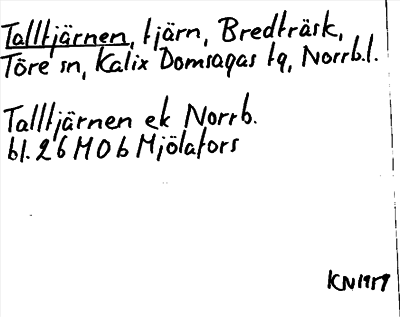 Talltjärnen, tjärn, Bredträsk,
Töre sn, Kalix Domsagas tg, Norrb.l.
Talltjärnen ek Norrb.
bl. 26 M 0 b Mjölafors
KN 1959